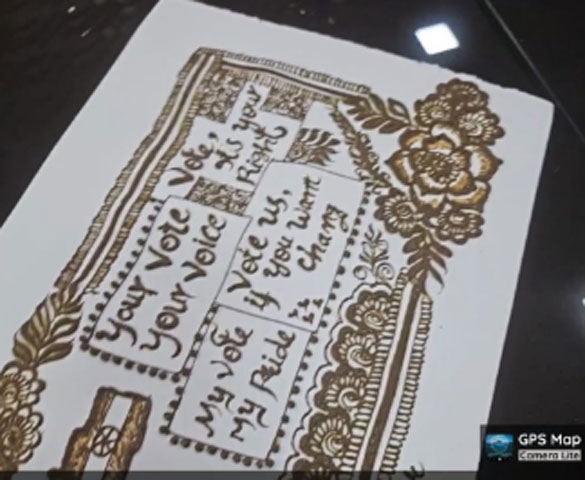 Vote,
it's your
Right
Your vote
your voice
Vote us,
if you want
chang
My vote
My Pride
GPS Map
Camera Lite